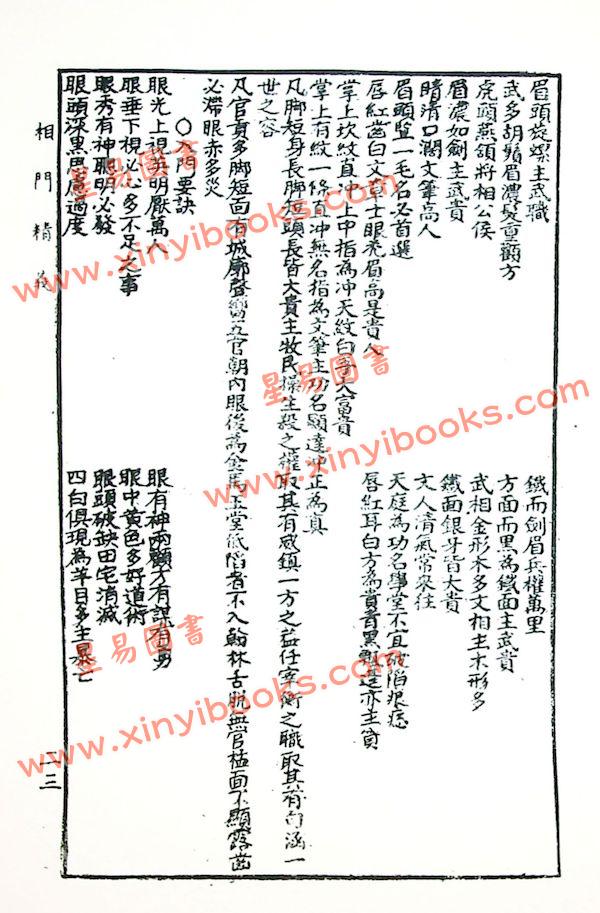 眉頭旋螺主武職
鐵面劍眉兵權萬里
武多胡鬚眉濃髮重顴方
方面而黑為鐵面主武貴
虎頭燕頷將相公侯
武相金形木多文相主木形多
眉濃如劍主武貴
鐵面銀牙皆大貴
睛清口濶文筆高人
文人清氣常來往
眉頭豎一毛名必首選
天庭為功名學堂不宜破陷痕痣
唇紅齒白文章士眼秀眉高是貴人
唇紅耳白方為貴耳黑飄蓬亦主貧
掌上坎紋直冲上中指為冲天紋白手大富貴
掌上有紋一條直冲無名指為文筆主功名顯達冲正為真
凡脚短身長脚短頭長皆大貴主牧民操生殺之權取其有威鎮一方之益任宰衡之職取其有包涵一
世之容
凡官貴多脚短面有城廓聲響五官朝內眼後為金馬玉堂低陷者不入翰林舌脫無官植面不顯露齒
必滯眼赤多災
○入門要訣
眼光上視英明厭萬人
眼有神兩顴方有謀有勇
眼垂下視必心多不足之事
眼中黃色多好道術
眼秀有神聰明必發
眼頭破缺田宅消滅
眼頭深黑思慮過度
四白俱現為羊目多主暴亡
相門精義
二三
星易圖書
www.xinyibooks.com
星易圖書
www.xinyibooks.com
星易圖書
www.xinyibooks.com
星易圖書
www.xinyibooks.com